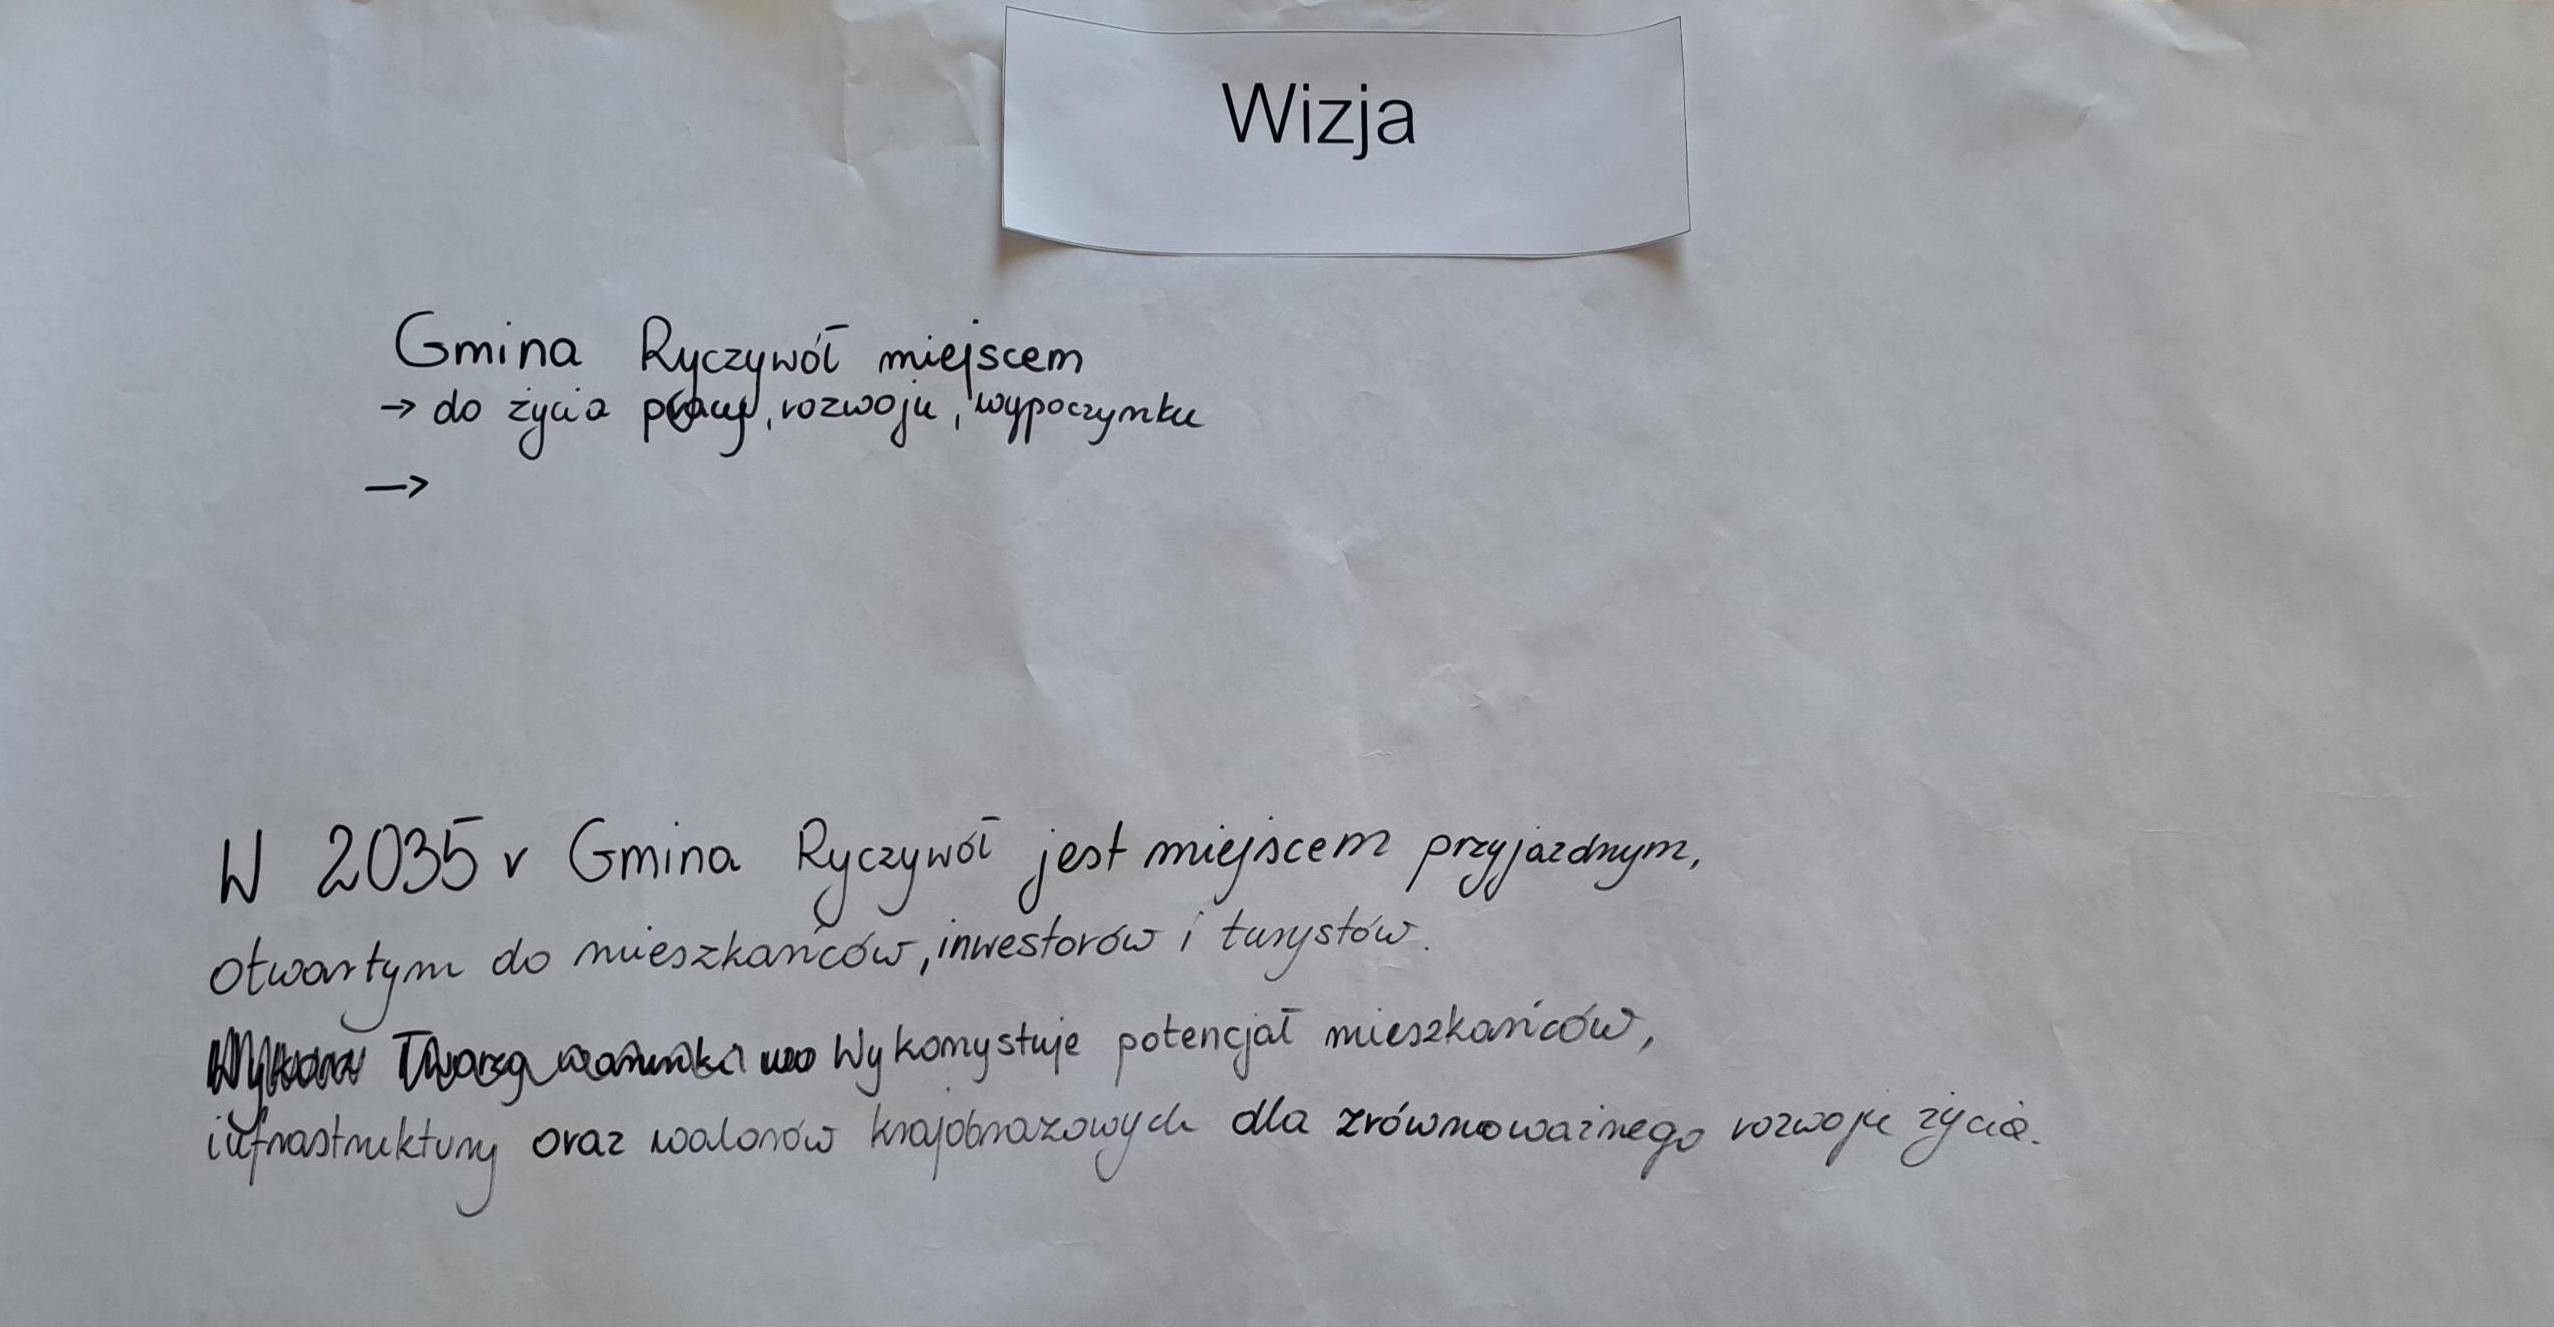 Wizja
Gmina Ryczywół miejscem
→ do życia pracy, rozwoju, wypoczynku
→
W 2035 r Gmina Ryczywół jest miejscem przyjaznym,
otwartym do mieszkańców, inwestorów i turystów.
Wykorzystuje potencjał mieszkańców,
infrastruktury oraz walorów krajobrazowych dla zrównoważnego rozwoju życia.